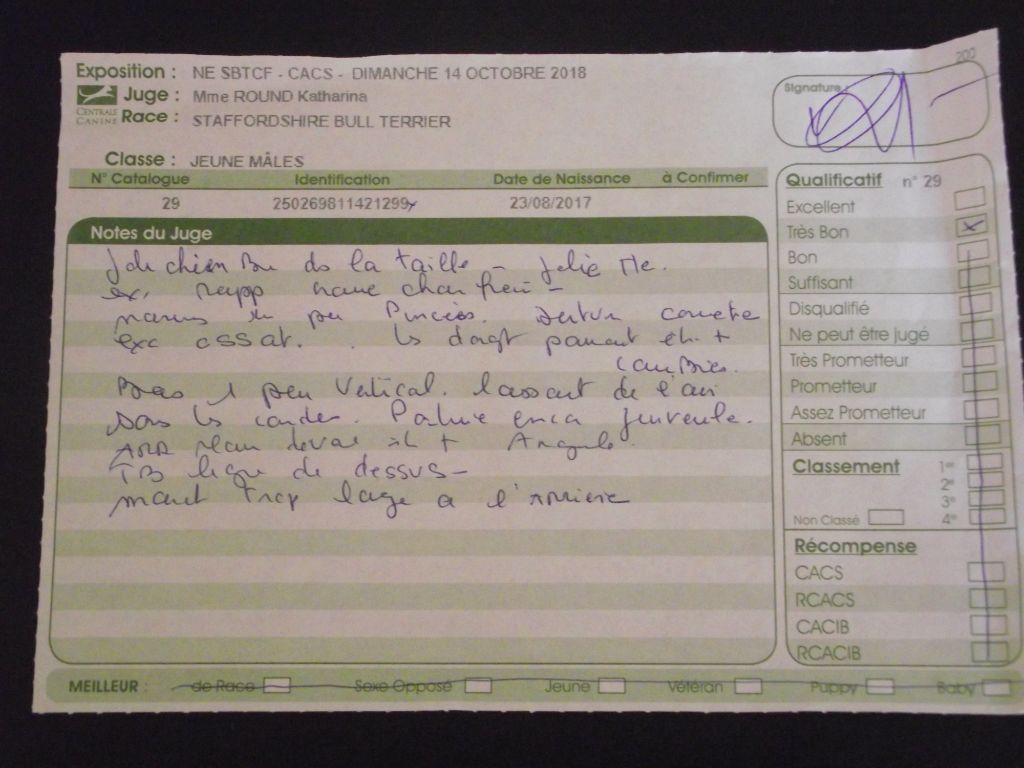 200
Exposition : NE SBTCF - CACS - DIMANCHE 14 OCTOBRE 2018
Juge : Mme ROUND Katharina
CENTRALE CANINE
Race : STAFFORDSHIRE BULL TERRIER
Signature :
Classe : JEUNE MÂLES
N° Catalogue Identification Date de Naissance à Confirmer
29 250269811421299 23/08/2017
Notes du Juge
chien ds la taille - Jolie
exc rapp chanfrein -
un peu Pincées. correcte
exc ossat. . les doigt
cambrés.
Bras 1 peu Vertical. de l'air
sous les Poitrine encor juvenile.
ARR + Angulé.
TB ligne de dessus -
trop large a l'Arriere
Qualificatif n° 29
Excellent
Très Bon
Bon
Suffisant
Disqualifié
Ne peut être jugé
Très Prometteur
Prometteur
Assez Prometteur
Absent
Classement 1er
2e
3e
Non Classé 4e
Récompense
CACS
RCACS
CACIB
RCACIB
MEILLEUR : de Race Sexe Opposé Jeune Vétéran Puppy Baby